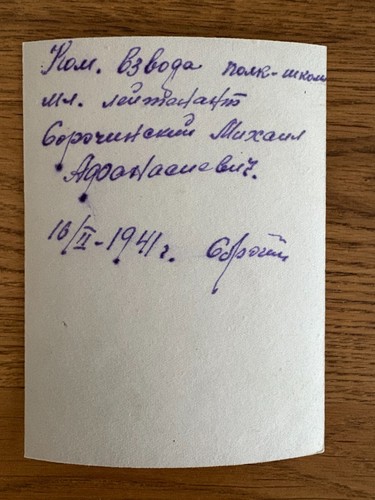 Ком. взвода полк-школы
мл. лейтенант
Сорочинский Михаил
Афанасиевич.
16/II-1941 г.